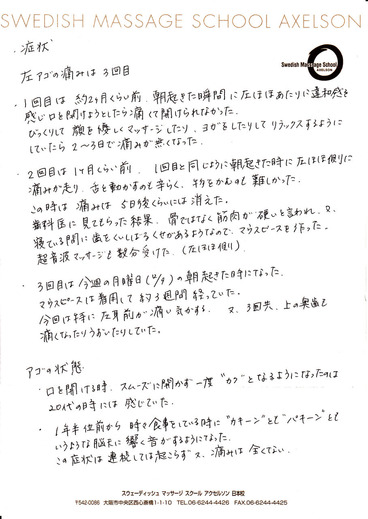 SWEDISH MASSAGE SCHOOL AXELSON
Swedish Massage School
AXELSON
・症状
左アゴの痛みは 3回目
・1回目は 約2ヶ月くらい前、朝起きた瞬間に左ほほあたりに違和感を
感じ口を開けようとしたら痛くて開けられなかった。
びっくりして 顔を優しくマッサージしたり、ヨガをしたりして リラックスするように
していたら 2〜3日で痛みが無くなった。
・2回目は 1ヶ月くらい前、1回目と同じように朝起きた時に左ほほ側に
痛みが走り、舌を動かすのも辛らく、物をかむのも難しかった。
この時は 痛みは 5日後くらいには消えた。
歯科医に見てもらった結果、骨ではなく筋肉が硬いと言われ、又、
寝ている間に歯をくいしばるくせがあるようなので、マウスピースを作った。
超音波マッサージも数分受けた（左ほほ側）。
・3回目は今週の月曜日の朝起きた時になった。
マウスピースは着用して約3週間経っていた。
今回は特に左耳前が痛い気がする。又、3回共、上の奥歯も
痛くなったりうずいたりしていた。
アゴの状態
・口を開ける時、スムーズに開かず一度 "カク" となるようになったのは
20代の時には 感じていた。
・1年半位前から 時々食事をしている時に "カキーン" とか "パキーン" と
いうような脳天に響く音がするようになった。
この症状は 連続しては起こらず又、痛みは 全くない。
スウェーディッシュ マッサージ スクール アクセルソン 日本校
〒542-0086 大阪市中央区西心斎橋1-1-10 TEL.06-6244-4426 FAX.06-6244-4425